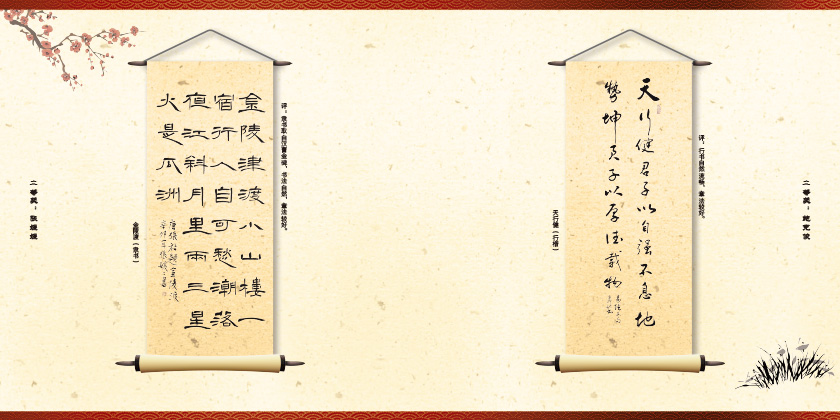 评：隶书取自汉曹全碑，书法自然，章法较好。
金陵津渡小山樓一
宿行人自可愁潮落
夜江斜月里兩三星
火是瓜洲
唐張祜題金陵渡
金陵渡（隶书）
二等奖：张媛媛
二等奖：
评：行书自然流畅，章法较好。
天行健君子以自强不息地
勢坤君子以厚德載物
天行健（行楷）